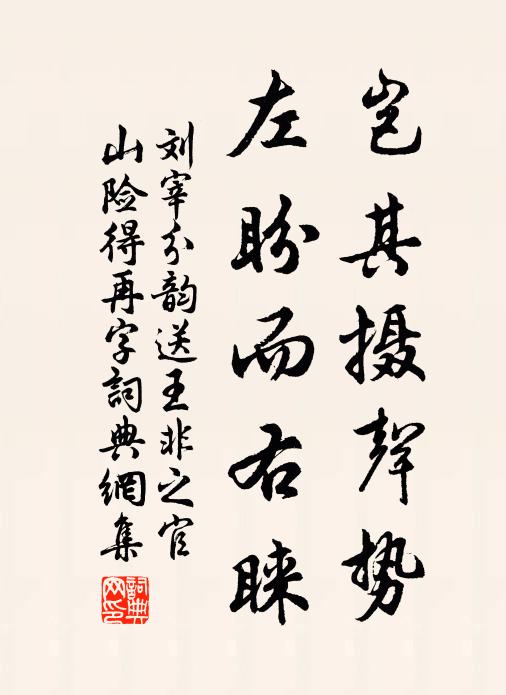 岂其摄聲势
左盼而右睐
刘宰分韵送王非之官
山险得再字詞典網集
詞典網印